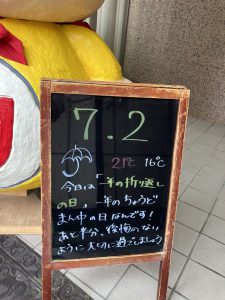 7.2
21℃ 16℃
今日は「一年の折り返し
の日」一年のちょうど
まん中の日なんです！
あと半分、後悔のない
ように大切に過ごしましょう